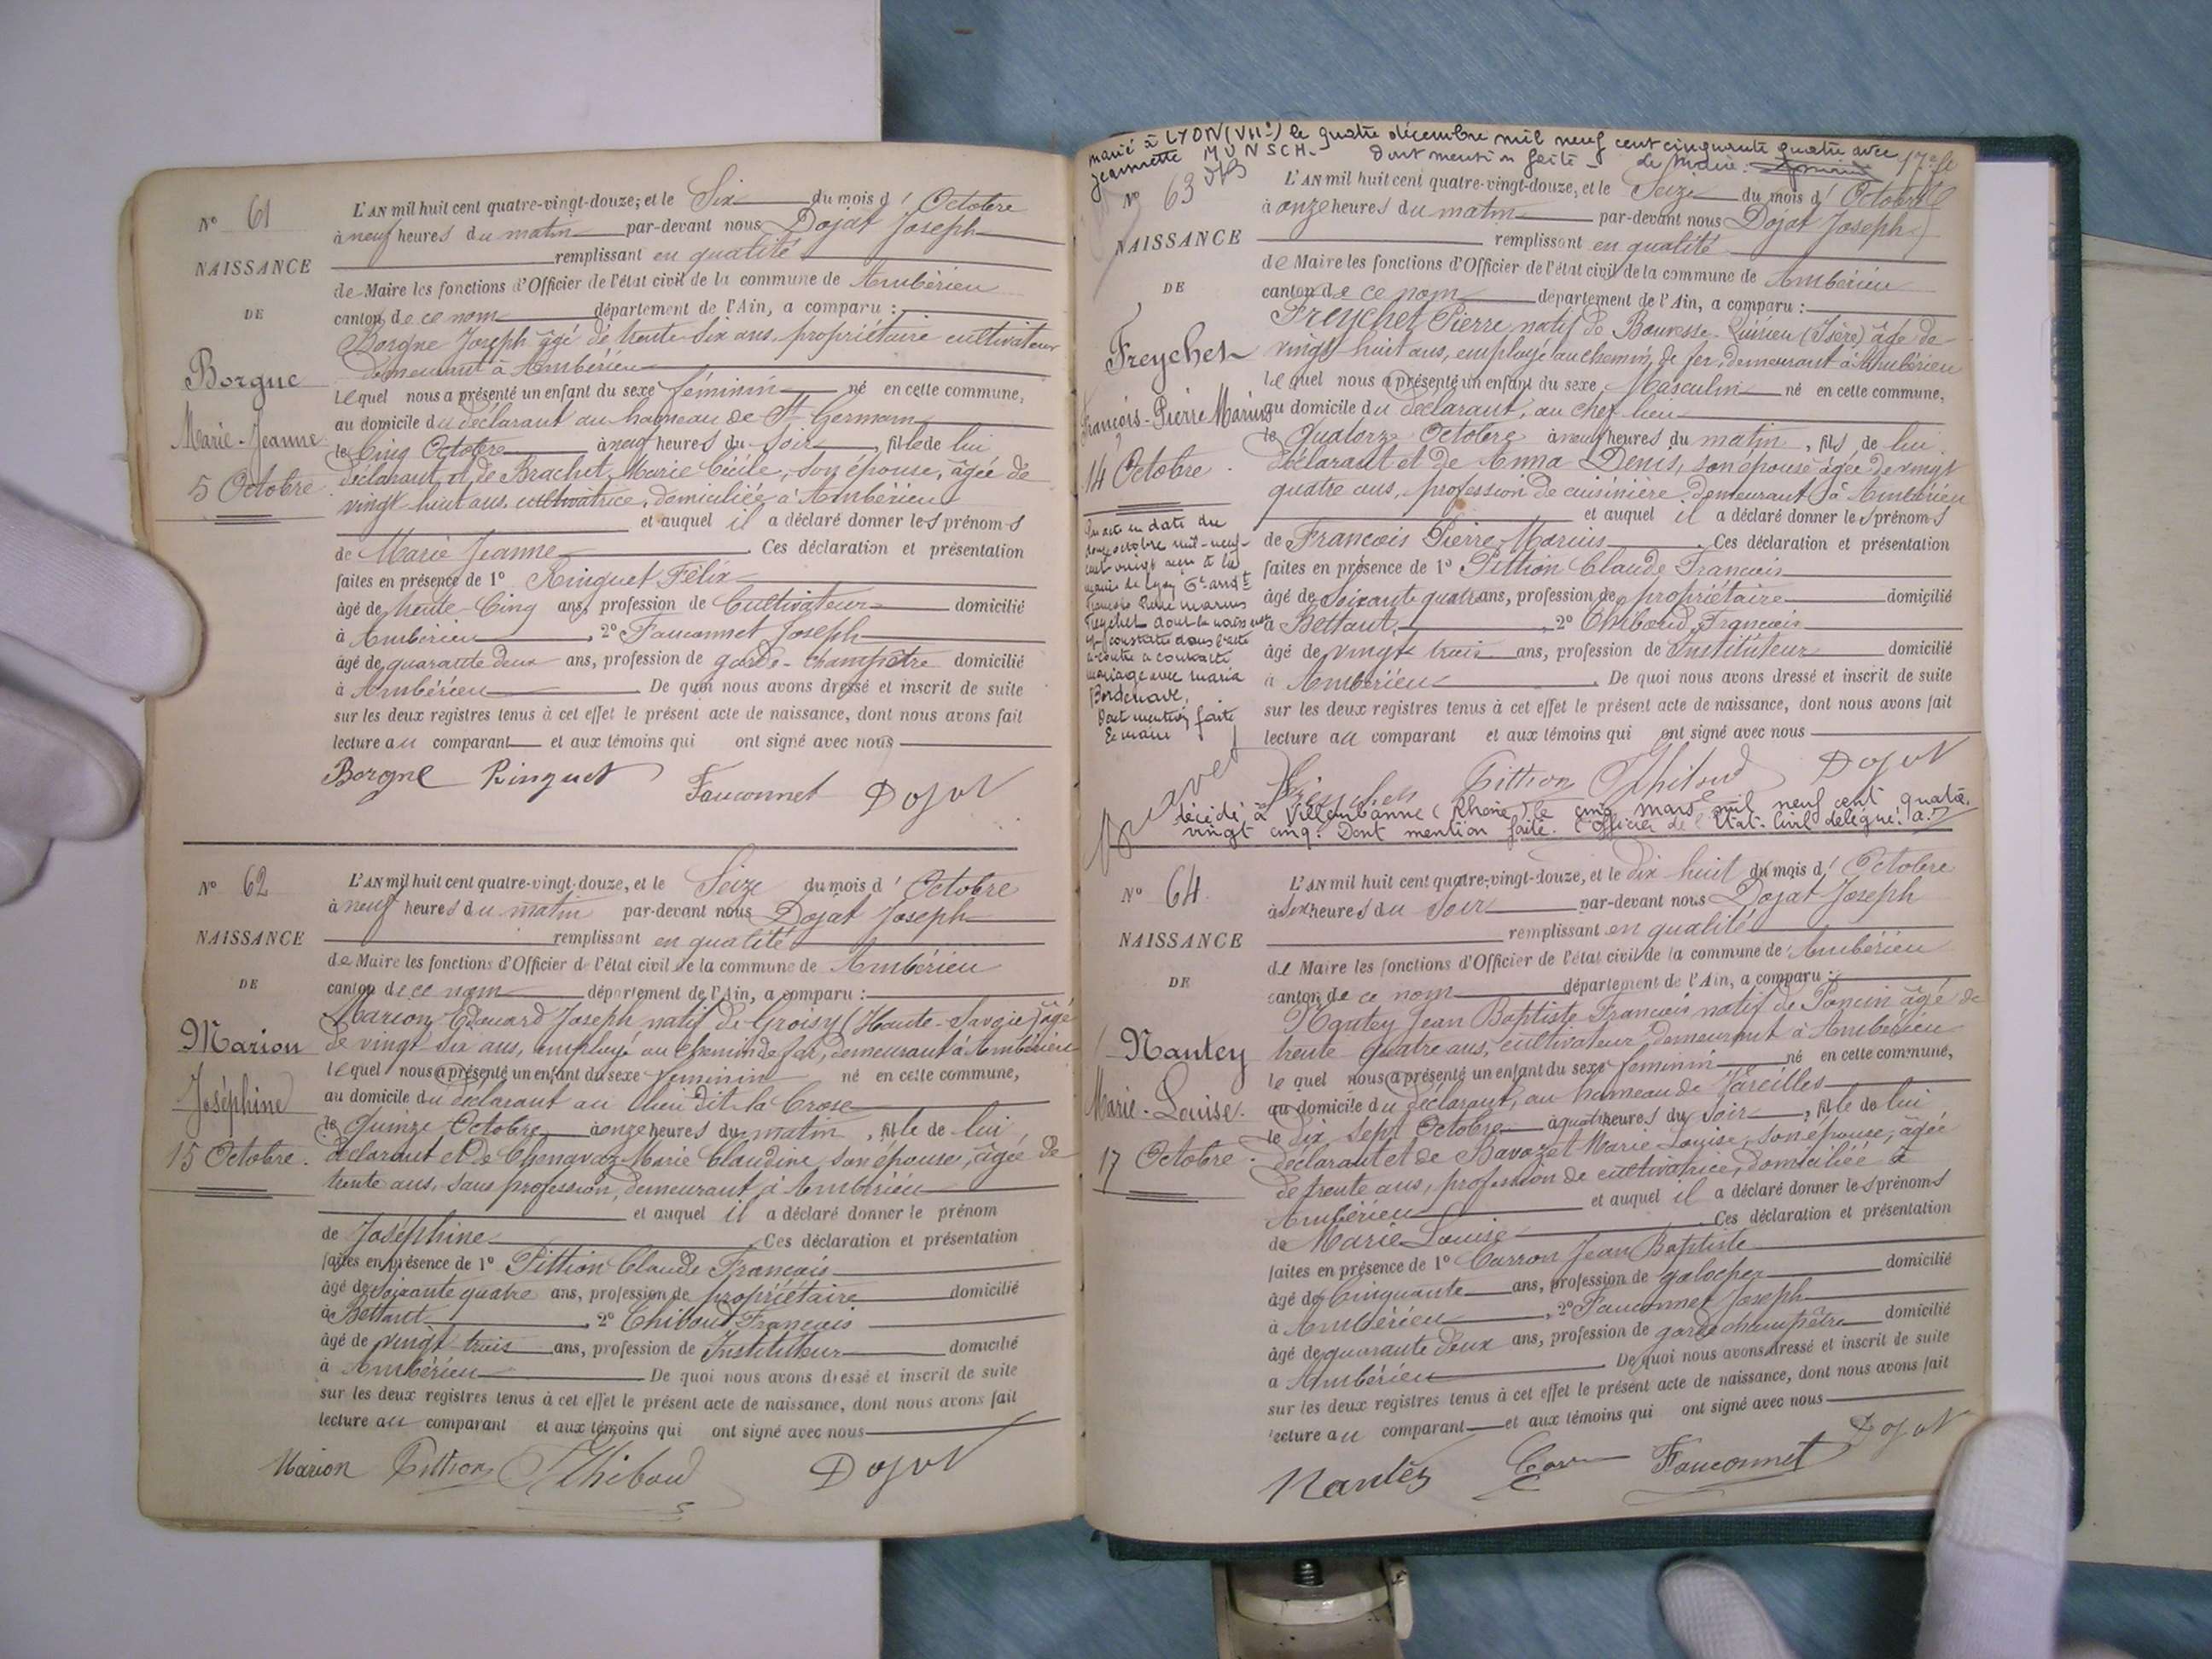 N° 61
NAISSANCE
DE
Borgne
Marie-Jeanne
5 Octobre
L'AN mil huit cent quatre-vingt-douze, et le Six du mois d' Octobre
à neuf heures du matin par-devant nous Dojat Joseph
remplissant en qualité
de Maire les fonctions d'Officier de l'état civil de la commune de Ambérieu
canton de ce nom département de l'Ain, a comparu :
Borgne Joseph âgé de trente-six ans, propriétaire cultivateur
demeurant à Ambérieu
lequel nous a présenté un enfant du sexe féminin né en cette commune,
au domicile du déclarant au hameau de St Germain
le Cinq Octobre à neuf heures du soir, fille de lui
déclarant et de Brachet Marie Cécile, son épouse, âgée de
vingt-huit ans, cultivatrice, domiciliée à Ambérieu
et auquel il a déclaré donner les prénoms
de Marie Jeanne Ces déclaration et présentation
faites en présence de 1° Ringuet Félix
âgé de trente-Cinq ans, profession de Cultivateur domicilié
à Ambérieu, 2° Fauconnet Joseph
âgé de quarante deux ans, profession de garde-champêtre domicilié
à Ambérieu. De quoi nous avons dressé et inscrit de suite
sur les deux registres tenus à cet effet le présent acte de naissance, dont nous avons fait
lecture au comparant et aux témoins qui ont signé avec nous
Borgne Ringuet Fauconnet Dojat
N° 62
NAISSANCE
DE
Marion
Joséphine
15 Octobre.
L'AN mil huit cent quatre-vingt-douze, et le Seize du mois d' Octobre
à neuf heures du matin par-devant nous Dojat Joseph
remplissant en qualité
de Maire les fonctions d'Officier de l'état civil de la commune de Ambérieu
canton de ce nom département de l'Ain, a comparu :
Marion Edouard Joseph natif de Groisy (Haute-Savoie) âgé
de vingt-six ans, employé au chemin de fer, demeurant à Ambérieu
lequel nous a présenté un enfant du sexe féminin né en cette commune,
au domicile du déclarant au lieu dit la Crose
le Quinze Octobre à onze heures du matin, fille de lui
déclarant et de Marie Claudine son épouse, âgée de
trente ans, sans profession, demeurant à Ambérieu
et auquel il a déclaré donner le prénom
de Joséphine Ces déclaration et présentation
faites en présence de 1° Pittion Claude François
âgé de soixante quatre ans, profession de propriétaire domicilié
à Bettant, 2° Thiboud François
âgé de vingt-trois ans, profession de Instituteur domicilié
à Ambérieu De quoi nous avons dressé et inscrit de suite
sur les deux registres tenus à cet effet le présent acte de naissance, dont nous avons fait
lecture au comparant et aux témoins qui ont signé avec nous
Marion Pittion Thiboud Dojat
marié à LYON (VIIe) le quatre décembre mil neuf cent cinquante quatre avec
Jeannette MUNSCH. Dont mention faite. Le Maire.
17e fe
N° 63
NAISSANCE
DE
Freychet
François-Pierre Marius
14 Octobre.
octobre mil-neuf-
cent vingt à la
mairie de Lyon 6e arrdt
François Pierre Marius
Freychet dont la naissance
est constatée dans l'acte
ci-contre a contracté
mariage avec Maria
Bordenave,
Dont mention faite
Le maire
L'AN mil huit cent quatre-vingt-douze, et le Seize du mois d' Octobre
à onze heures du matin par-devant nous Dojat Joseph
remplissant en qualité
de Maire les fonctions d'Officier de l'état civil de la commune de Ambérieu
canton de ce nom département de l'Ain, a comparu :
Freychet Pierre natif de Bouvesse-Quirieu (Isère) âgé de
vingt-huit ans, employé au chemin de fer, demeurant à Ambérieu
lequel nous a présenté un enfant du sexe Masculin né en cette commune,
au domicile du déclarant, au chef lieu
le Quatorze Octobre à neuf heures du matin, fils de lui
déclarant et de Anna Denis, son épouse âgée de vingt
quatre ans, profession de cuisinière demeurant à Ambérieu
et auquel il a déclaré donner les prénoms
de François Pierre Marius. Ces déclaration et présentation
faites en présence de 1° Pittion Claude François
âgé de soixante quatre ans, profession de propriétaire domicilié
à Bettant, 2° Thiboud François
âgé de vingt trois ans, profession de Instituteur domicilié
à Ambérieu. De quoi nous avons dressé et inscrit de suite
sur les deux registres tenus à cet effet le présent acte de naissance, dont nous avons fait
lecture au comparant et aux témoins qui ont signé avec nous
Freychet Pittion Thiboud Dojat
décédé à Villeurbanne (Rhône) le cinq mars mil neuf cent quatre.
vingt cinq. Dont mention faite. L'Officier de l'Etat-Civil délégué.
N° 64.
NAISSANCE
DE
Nantey
Marie-Louise.
17 Octobre.
L'AN mil huit cent quatre-vingt-douze, et le dix huit du mois d' Octobre
à six heures du soir par-devant nous Dojat Joseph
remplissant en qualité
de Maire les fonctions d'Officier de l'état civil de la commune de Ambérieu
canton de ce nom département de l'Ain, a comparu :
Nantey Jean Baptiste François natif de Poncin âgé de
trente quatre ans, cultivateur, demeurant à Ambérieu
lequel nous a présenté un enfant du sexe féminin né en cette commune,
au domicile du déclarant, au hameau de Vareilles
le dix sept Octobre à quatre heures du soir, fille de lui
déclarant et de Savozet Marie Louise, son épouse, âgée
de trente ans, profession de cultivatrice, domiciliée à
Ambérieu et auquel il a déclaré donner les prénoms
de Marie Louise Ces déclaration et présentation
faites en présence de 1° Carron Jean Baptiste
âgé de Cinquante ans, profession de galocher domicilié
à Ambérieu, 2° Fauconnet Joseph
âgé de quarante deux ans, profession de garde champêtre domicilié
à Ambérieu De quoi nous avons dressé et inscrit de suite
sur les deux registres tenus à cet effet le présent acte de naissance, dont nous avons fait
lecture au comparant et aux témoins qui ont signé avec nous
Nantey Fauconnet Dojat